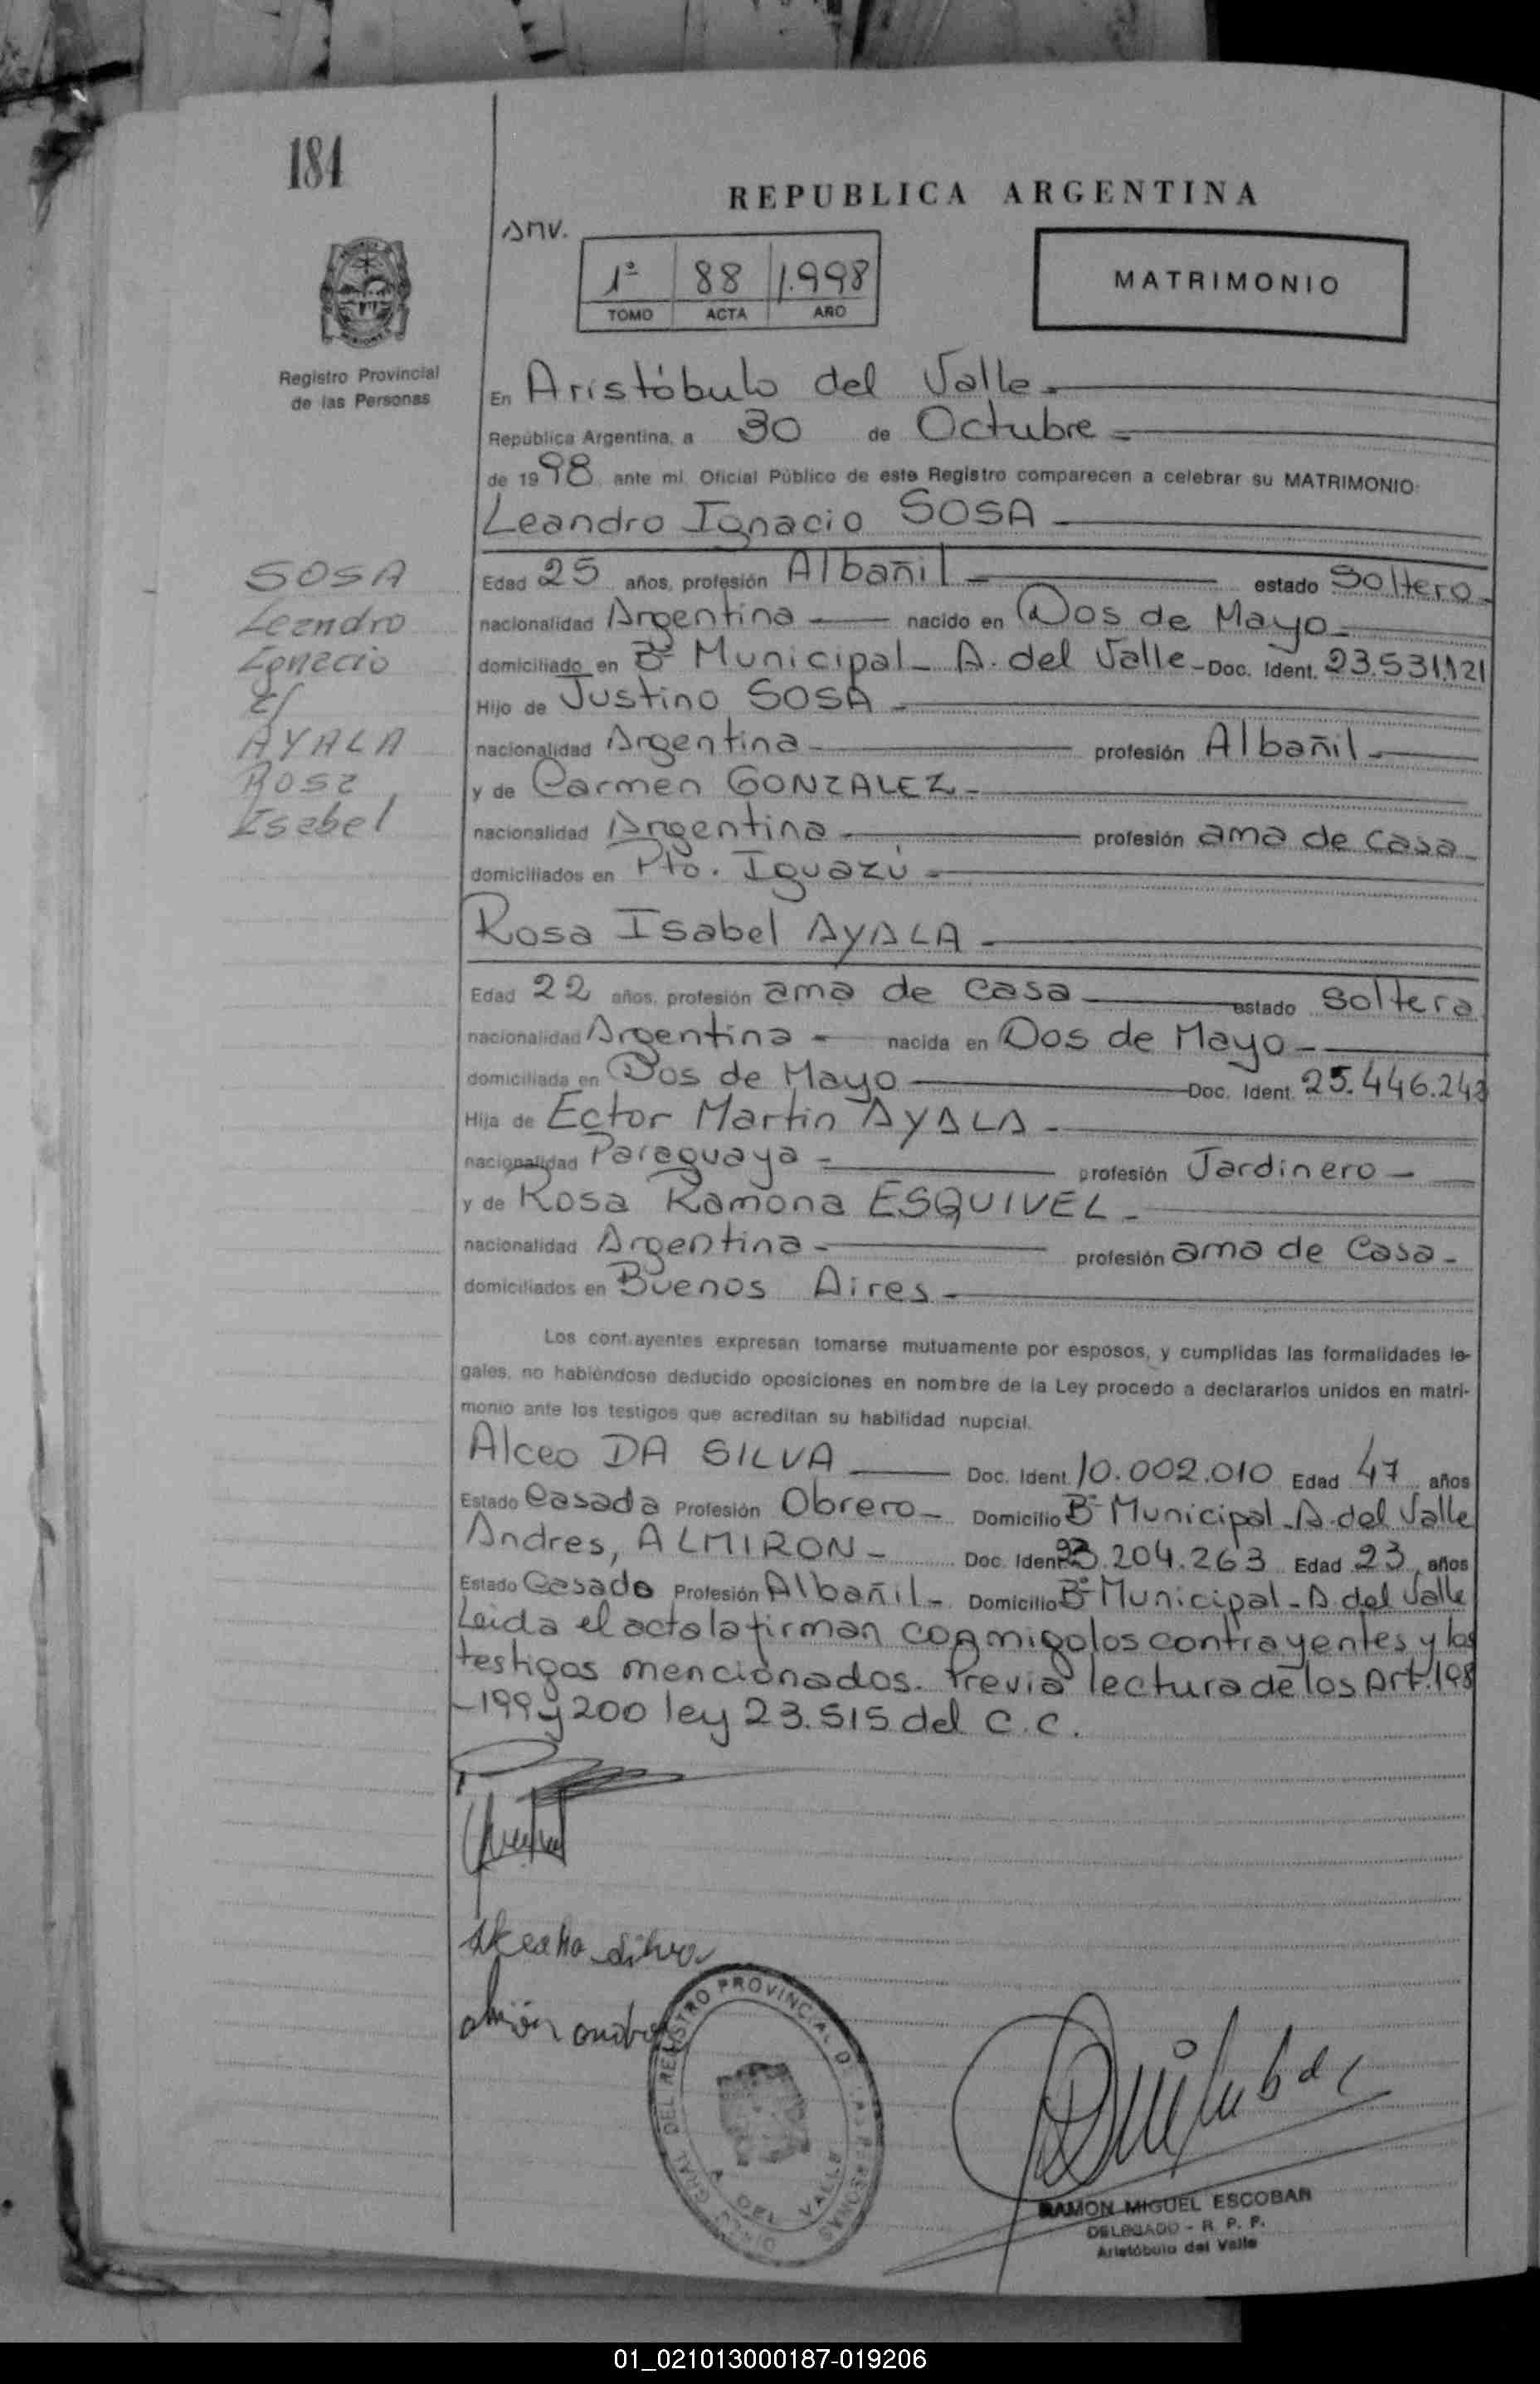 184
REPUBLICA ARGENTINA
AMV.
1º 88 1.998
TOMO ACTA AÑO
MATRIMONIO
Registro Provincial
de las Personas
En Aristóbulo del Valle.
República Argentina, a 30 de Octubre
de 1998 ante mi Oficial Público de este Registro comparecen a celebrar su MATRIMONIO:
Leandro Ignacio SOSA
SOSA
Leandro
Ignacio
c/
AYALA
Rosa
Isabel
Edad 25 años, profesión Albañil estado Soltero
nacionalidad Argentina nacido en Dos de Mayo
domiciliado en Bº Municipal - A. del Valle - Doc. Ident. 23.531.121
Hijo de Justino SOSA
nacionalidad Argentina profesión Albañil
y de Carmen GONZALEZ
nacionalidad Argentina profesión ama de casa
domiciliados en Pto. Iguazú
Rosa Isabel AYALA
Edad 22 años, profesión ama de casa estado Soltera
nacionalidad Argentina nacida en Dos de Mayo
domiciliada en Dos de Mayo Doc. Ident. 25.446.243
Hija de Ector Martin AYALA
nacionalidad Paraguaya profesión Jardinero
y de Rosa Ramona ESQUIVEL
nacionalidad Argentina profesión ama de Casa
domiciliados en Buenos Aires
Los contrayentes expresan tomarse mutuamente por esposos, y cumplidas las formalidades le-
gales, no habiéndose deducido oposiciones en nombre de la Ley procedo a declararlos unidos en matri-
monio ante los testigos que acreditan su habilidad nupcial.
Alceo DA SILVA Doc. Ident. 10.002.010 Edad 47 años
Estado Casada Profesión Obrero Domicilio Bº Municipal - A. del Valle
Andres, ALMIRON Doc. Ident. 93.204.263 Edad 23 años
Estado Casado Profesión Albañil Domicilio Bº Municipal - A. del Valle
Leida el acta la firman conmigo los contrayentes y los
testigos mencionados. Previa lectura de los Art. 198
-199 y 200 ley 23.515 del C.C.
DIREC. GRAL. DEL REGISTRO PROVINCIAL DE LAS PERSONAS
A. DEL VALLE
RAMON MIGUEL ESCOBAR
DELEGADO - R. P. P.
Aristóbulo del Valle
01_021013000187-019206